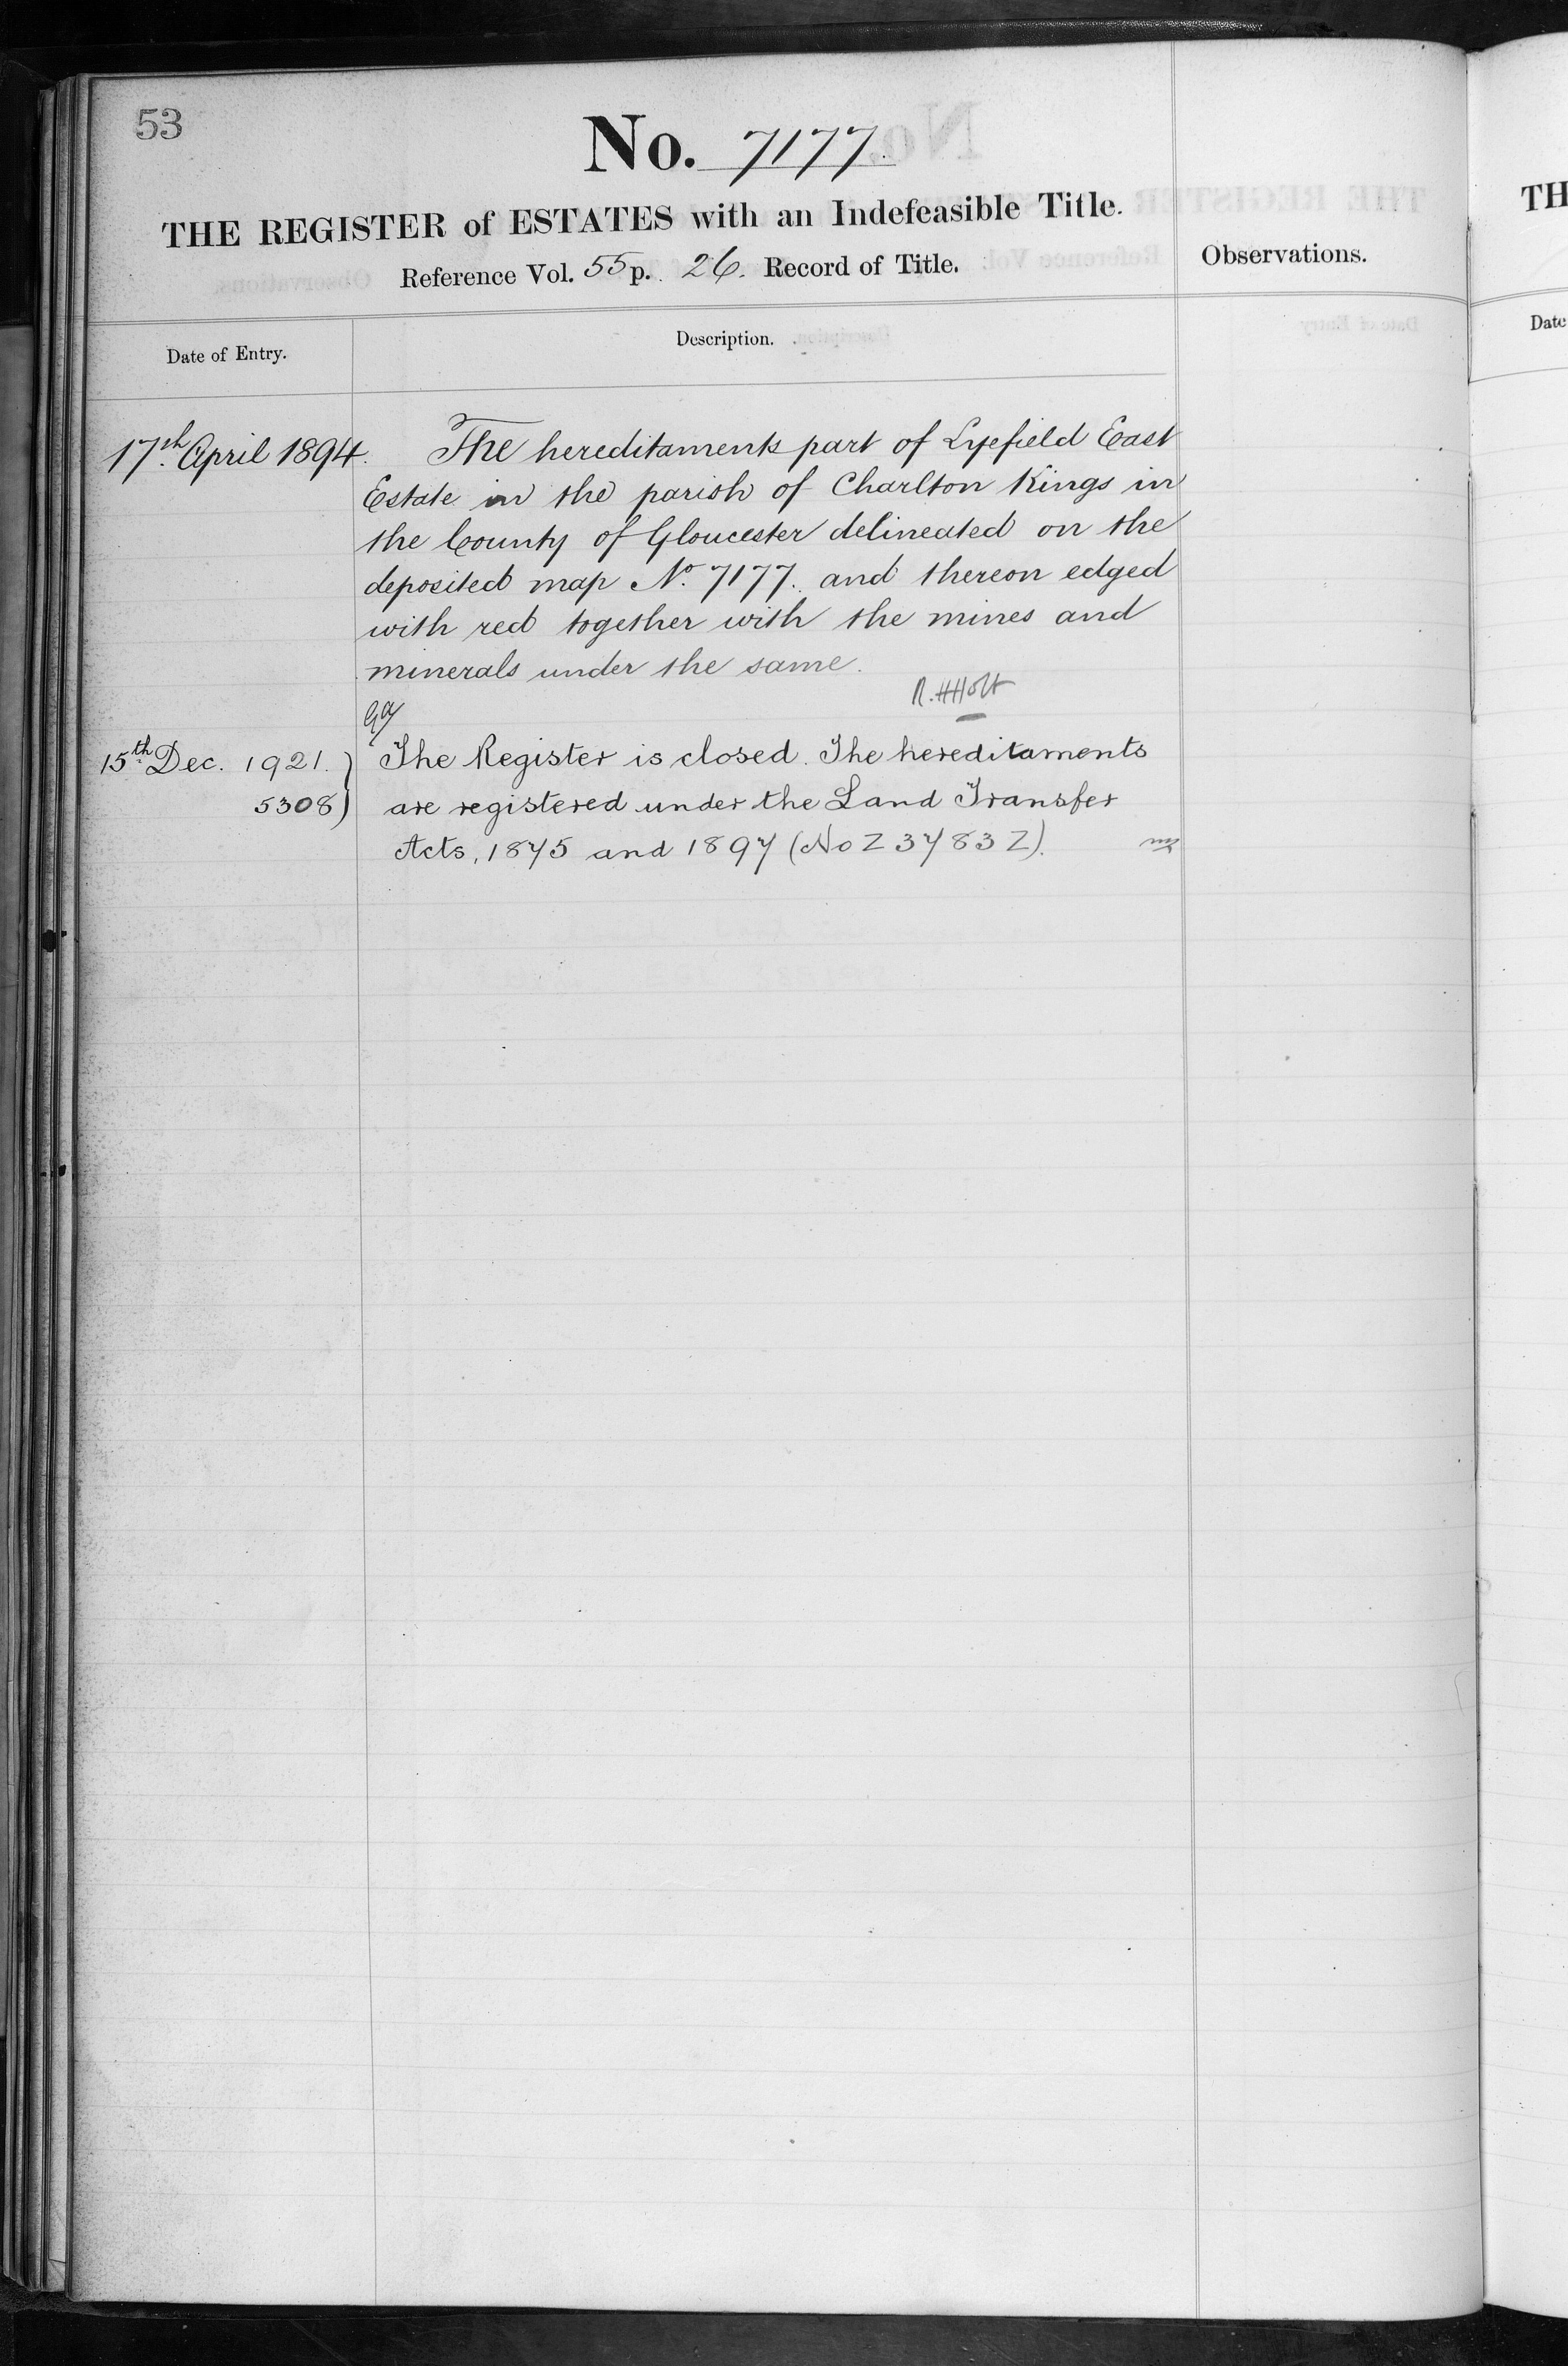 53
No. 7177.
THE REGISTER of ESTATES with an Indefeasible Title.
Reference Vol. 55 p. 26. Record of Title.
Observations.
Date of Entry.
Description.
17th April 1894.
The hereditaments part of Lyefield East
Estate in the parish of Charlton Kings in
the County of Gloucester delineated on the
deposited map No. 7177. and thereon edged
with red together with the mines and
minerals under the same.
R. H Holt
15th Dec. 1921.
5308
The Register is closed. The hereditaments
are registered under the Land Transfer
Acts, 1875 and 1897 (No Z 3783 Z).
TH
Date